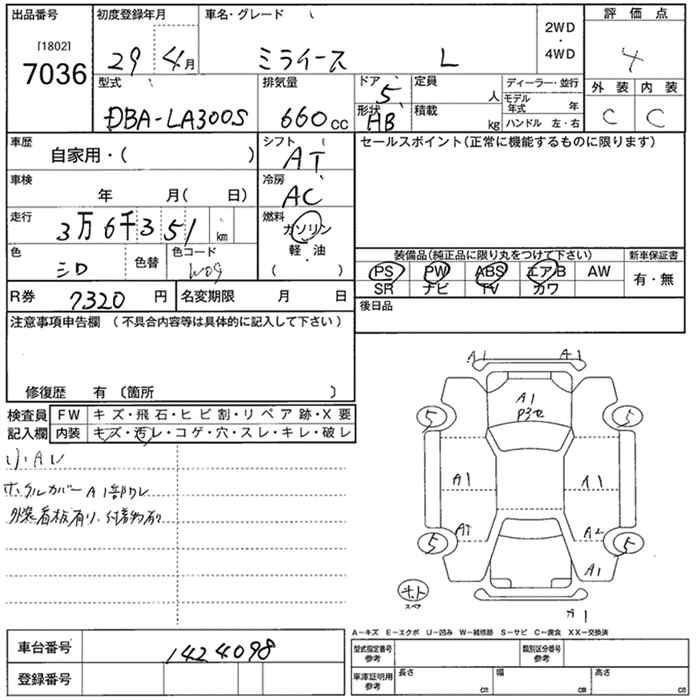 出品番号 初度登録年月 車名・グレード 2WD・4WD 評価点
[1802]
7036
29年4月 ミライース L 4
型式 排気量 ドア 定員 ディーラー・並行 外装 内装
DBA-LA300S 660cc 5 人 モデル年式 年 C C
形状 HB 積載 kg ハンドル 左・右
車歴 自家用・( ) シフト AT セールスポイント(正常に機能するものに限ります)
車検 年 月( 日) 冷房 AC
走行 3万6千351km 燃料 ガソリン 軽油 ( ・ )
色 シロ 色替 色コード W09
装備品(純正品に限り丸をつけて下さい) 新車保証書
PS PW ABS エアB AW 有・無
SR ナビ TV カワ
R券 7320円 名変期限 月 日 後日品
注意事項申告欄(不具合内容等は具体的に記入して下さい)
修復歴 有〔箇所 〕
検査員 FW キズ・飛石・ヒビ割・リペア跡・X要
記入欄 内装 キズ・汚レ・コゲ・穴・スレ・キレ・破レ
小・AU
ホイルカバーA1部ワレ
外装看板有り、付着物有り
A1 A1
A1
5 5
A1 A1
A2
5 5
A1
スペア
1
A-キズ E-エクボ U-凹み W-補修跡 S-サビ C-腐食 XX-交換済
車台番号 1424098 型式指定番号 参考 類別区分番号 参考
登録番号 車庫証明用 参考 長さ cm 幅 cm 高さ cm